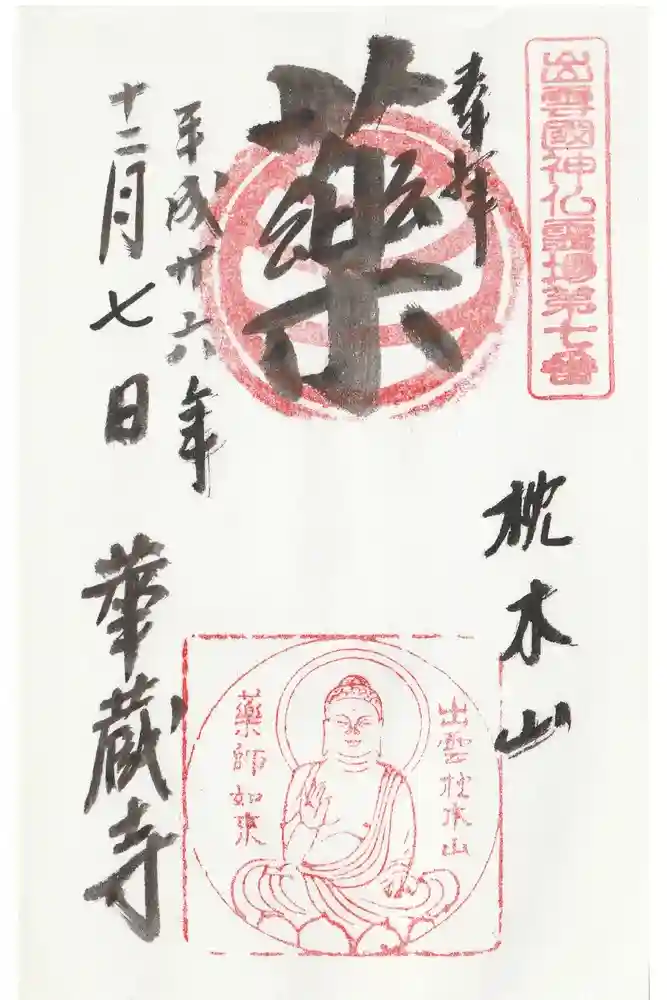 出雲國神仏霊場第七番
奉拝
藥
枕木山
平成廿六年
十二月七日
華蔵寺
出雲枕木山
藥師如来